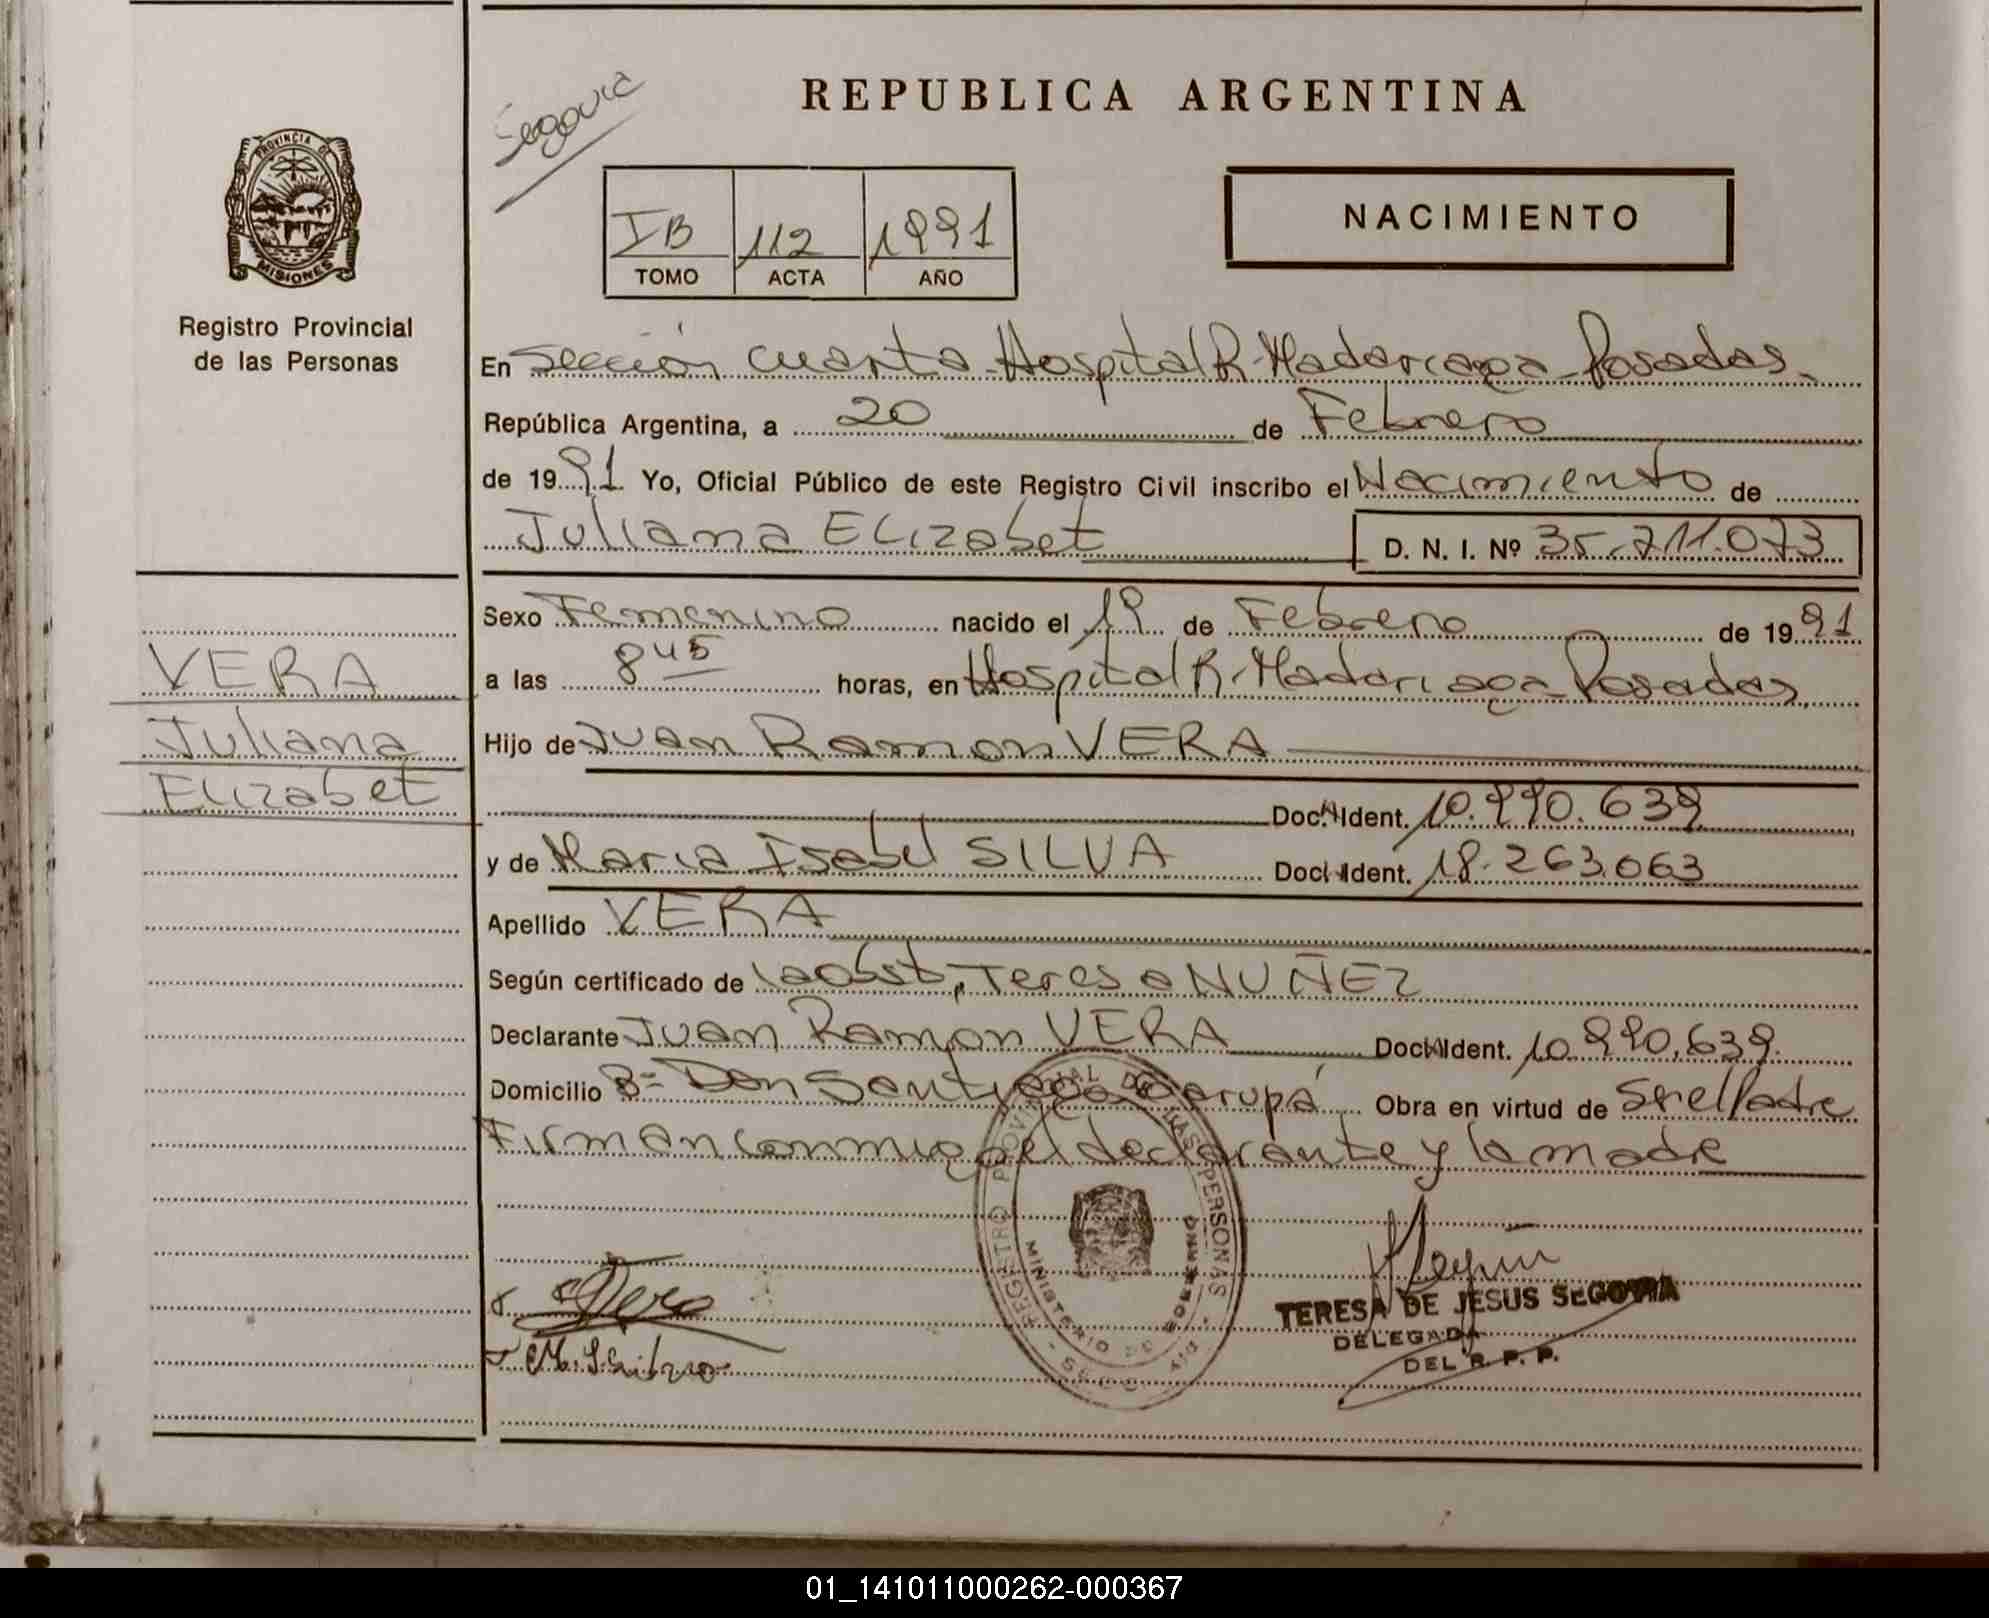 Segovia
REPUBLICA ARGENTINA
PROVINCIA D
MISIONES
Registro Provincial
de las Personas
IB 112 1991
TOMO ACTA AÑO
NACIMIENTO
En Sección Cuarta-Hospital R. Madariaga-Posadas-
República Argentina, a 20 de Febrero
de 1991 Yo, Oficial Público de este Registro Civil inscribo el Nacimiento de
Juliana Elizabet D. N. I. Nº 35.711.073
Sexo Femenino nacido el 19 de Febrero de 1991
a las 8 45 horas, en Hospital R. Madariaga-Posadas
Hijo de Juan Ramon VERA
Doc. Ident. 10.990.639
y de Maria Isabel SILVA Doc. Ident. 18.263.063
Apellido VERA
Según certificado de la Obst. Teresa NUÑEZ
Declarante Juan Ramon VERA Doc. Ident. 10.990.639.
Domicilio Bº Don Santiago Garupá Obra en virtud de Ser el Padre
Firman conmigo el declarante y la madre
VERA
Juliana
Elizabet
REGISTRO PROVINCIAL DE LAS PERSONAS
MINISTERIO DE GOBIERNO
Vera
TERESA DE JESUS SEGOVIA
DELEGADA
DEL R. P. P.
01_141011000262-000367